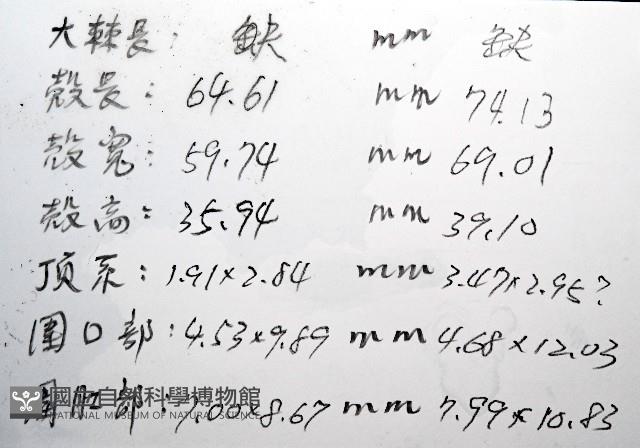 大棘長: 缺 mm 缺
殼長: 64.61 mm 74.13
殼寬: 59.74 mm 69.01
殼高: 35.94 mm 39.10
頂系: 1.91×2.84 mm 3.47×2.95?
圍口部: 4.53×9.89 mm 4.68×12.03
圍肛部: 7.00×8.67 mm 7.99×10.83
國立自然科學博物館
NATIONAL MUSEUM OF NATURAL SCIENCE